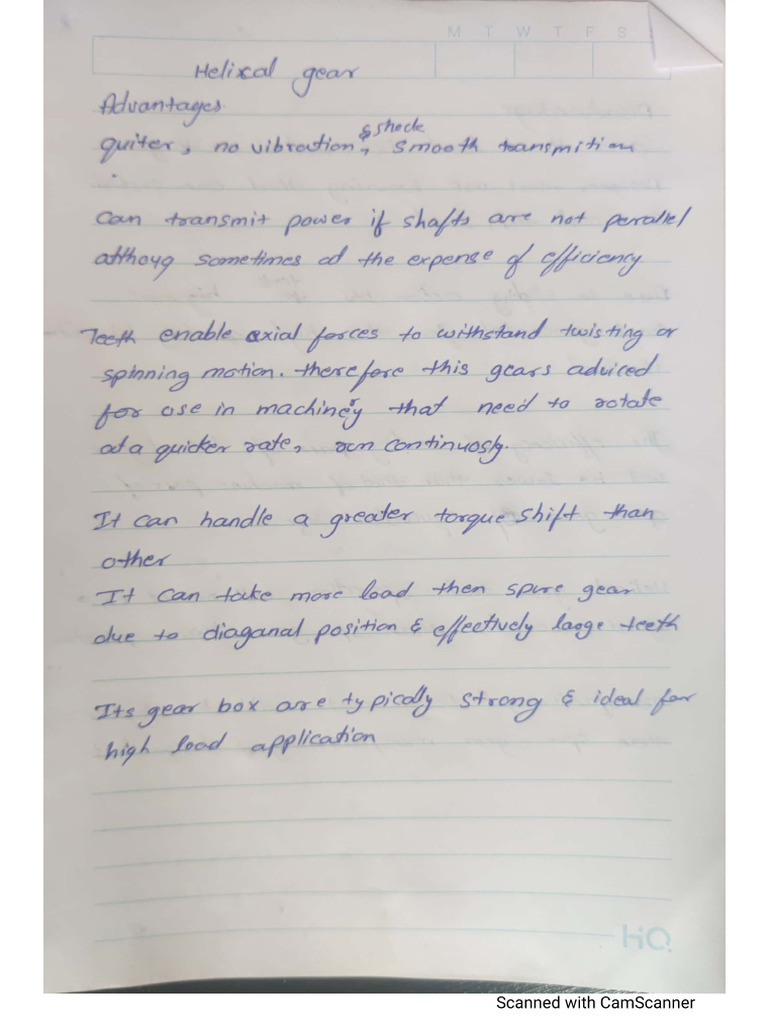 M T W T F S
Helical gear
Advantages
quiter, no vibration & shock, smooth transmition
Can transmit power if shafts are not perallel
althoug sometimes at the expense of efficiency
Teeth enable axial forces to withstand twisting or
spinning motion. therefore this gears adviced
for use in machinery that need to rotate
at a quicker rate, run continuosly.
It can handle a greater torque shift than
other
It can take more load then spure gear
due to diaganal position & effectively large teeth
Its gear box are typically strong & ideal for
high load application
HQ
Scanned with CamScanner